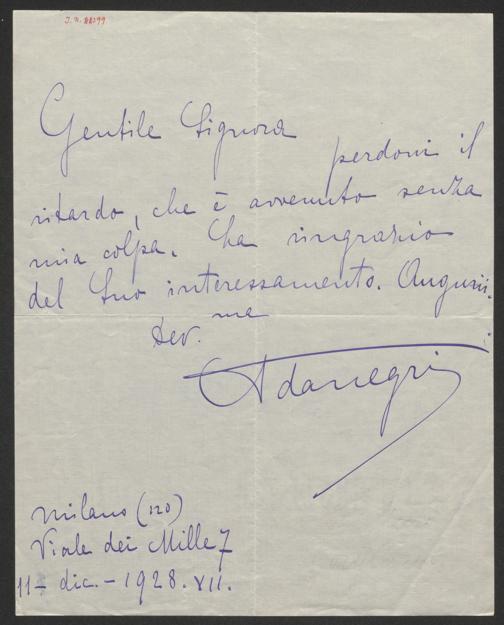 I. N. 88299
Gentile Signora
perdoni il
ritardo, che è avvenuto senza
mia colpa. La ringrazio
del Suo interessamento. Auguri.
Dev.me
Adanegri
Milano (120)
Viale dei Mille 7
11 dic. - 1928. VII.